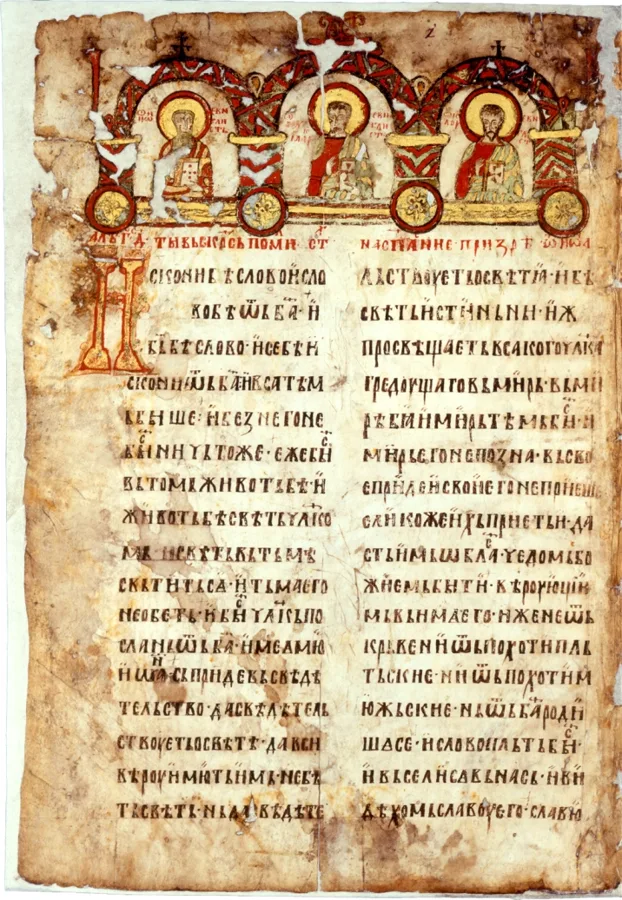 И
скони бѣ слово и сло
во бѣ ѿь б҃а · и
б҃ь бѣ слово · и се бѣ и
скони ѿь б҃а и вса тѣм
ь бꙑше · и без него не
бꙑⷭ ничьтоже · еже бꙑⷭ
вь томь животь бѣ · и
животь бѣ свѣть чл҃ко
мь · и свѣть вь тьмѣ
свьтитьса · и тьма его
не обеть · и бꙑⷭ чл҃кь по
слань ѿь б҃а · име ѥмꙋ
сь приде вь свѣдѣ
тельство · да свѣдѣтель
ствоуеть о свѣтѣ · да вси
вѣроу имють имь · не бѣ
ть свѣть · нь да вѣдѣте
льствоуеть о свѣтѣ · и бѣ
свѣть истиньнꙑ · иж
просвѣщаеть всакого чл҃ка
гредоущаго вь мирь · вь ми
рѣ бѣ и мирь тѣмь бꙑⷭ · и
мирь его не позна · вь сво
е приде и свои его не прие
ели коже ихь приеть и · да
сть имь ѡбла · чедомь бо
жиемь бꙑти · вѣроующи
мь вь има его · иже не ѿь
крьве ни ѿь похоти пль
тьские · ни ѿь похоти м
южьские · нь ѿь б҃а роди
ше се · и слово пльть бꙑⷭ ·
и вьсели са вь нась · и ви
дѣхомь славоу его · славю